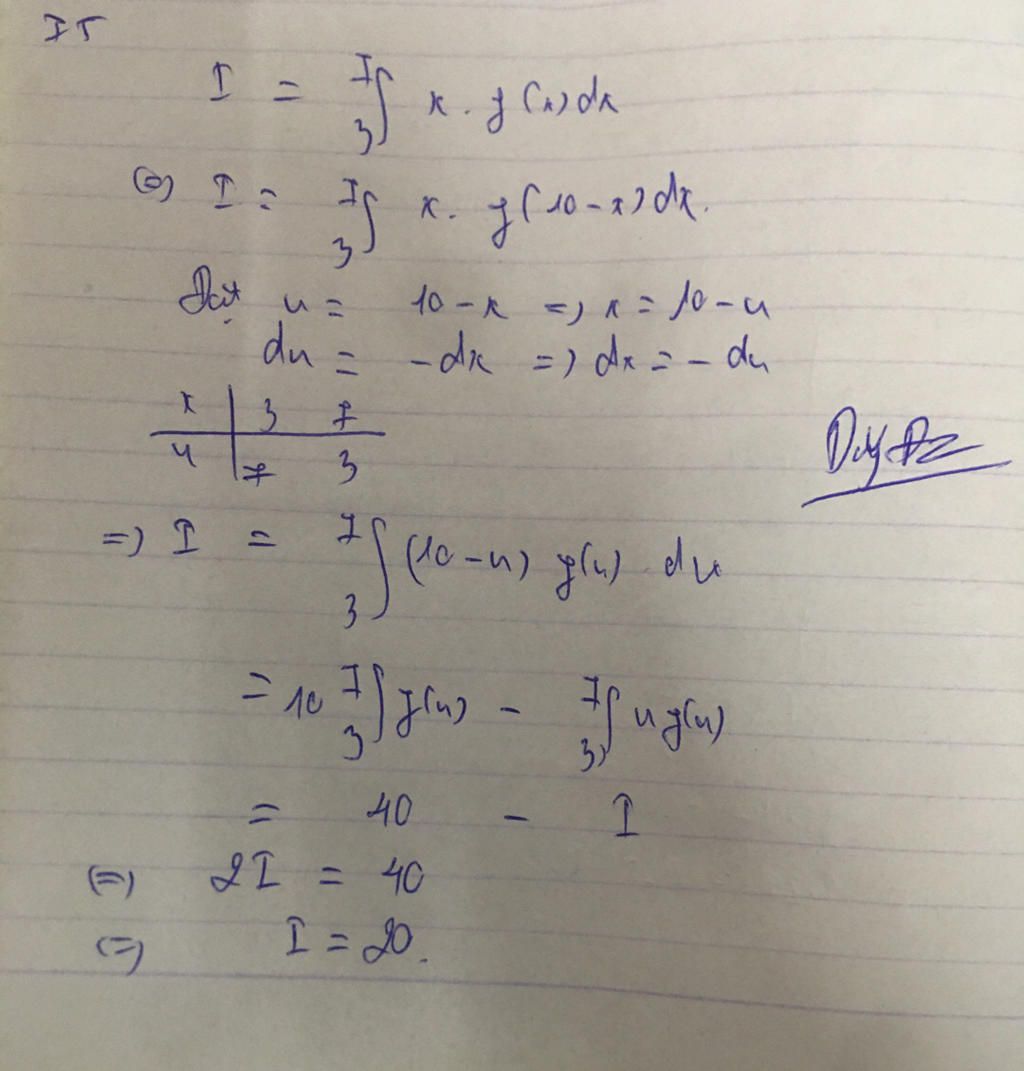 I5
I = ₃⁷∫ x. f(x)dx
(=) I = ₃⁷∫ x. f(10-x)dx.
Đặt u = 10-x => x = 10-u
du = -dx => dx = -du
x | 3 7
u | 7 3
=> I = ₃⁷∫ (10-u) f(u) du
= 10 ₃⁷∫ f(u) - ₃⁷∫ u f(u)
= 40 - I
(=) 2I = 40
(=) I = 20.